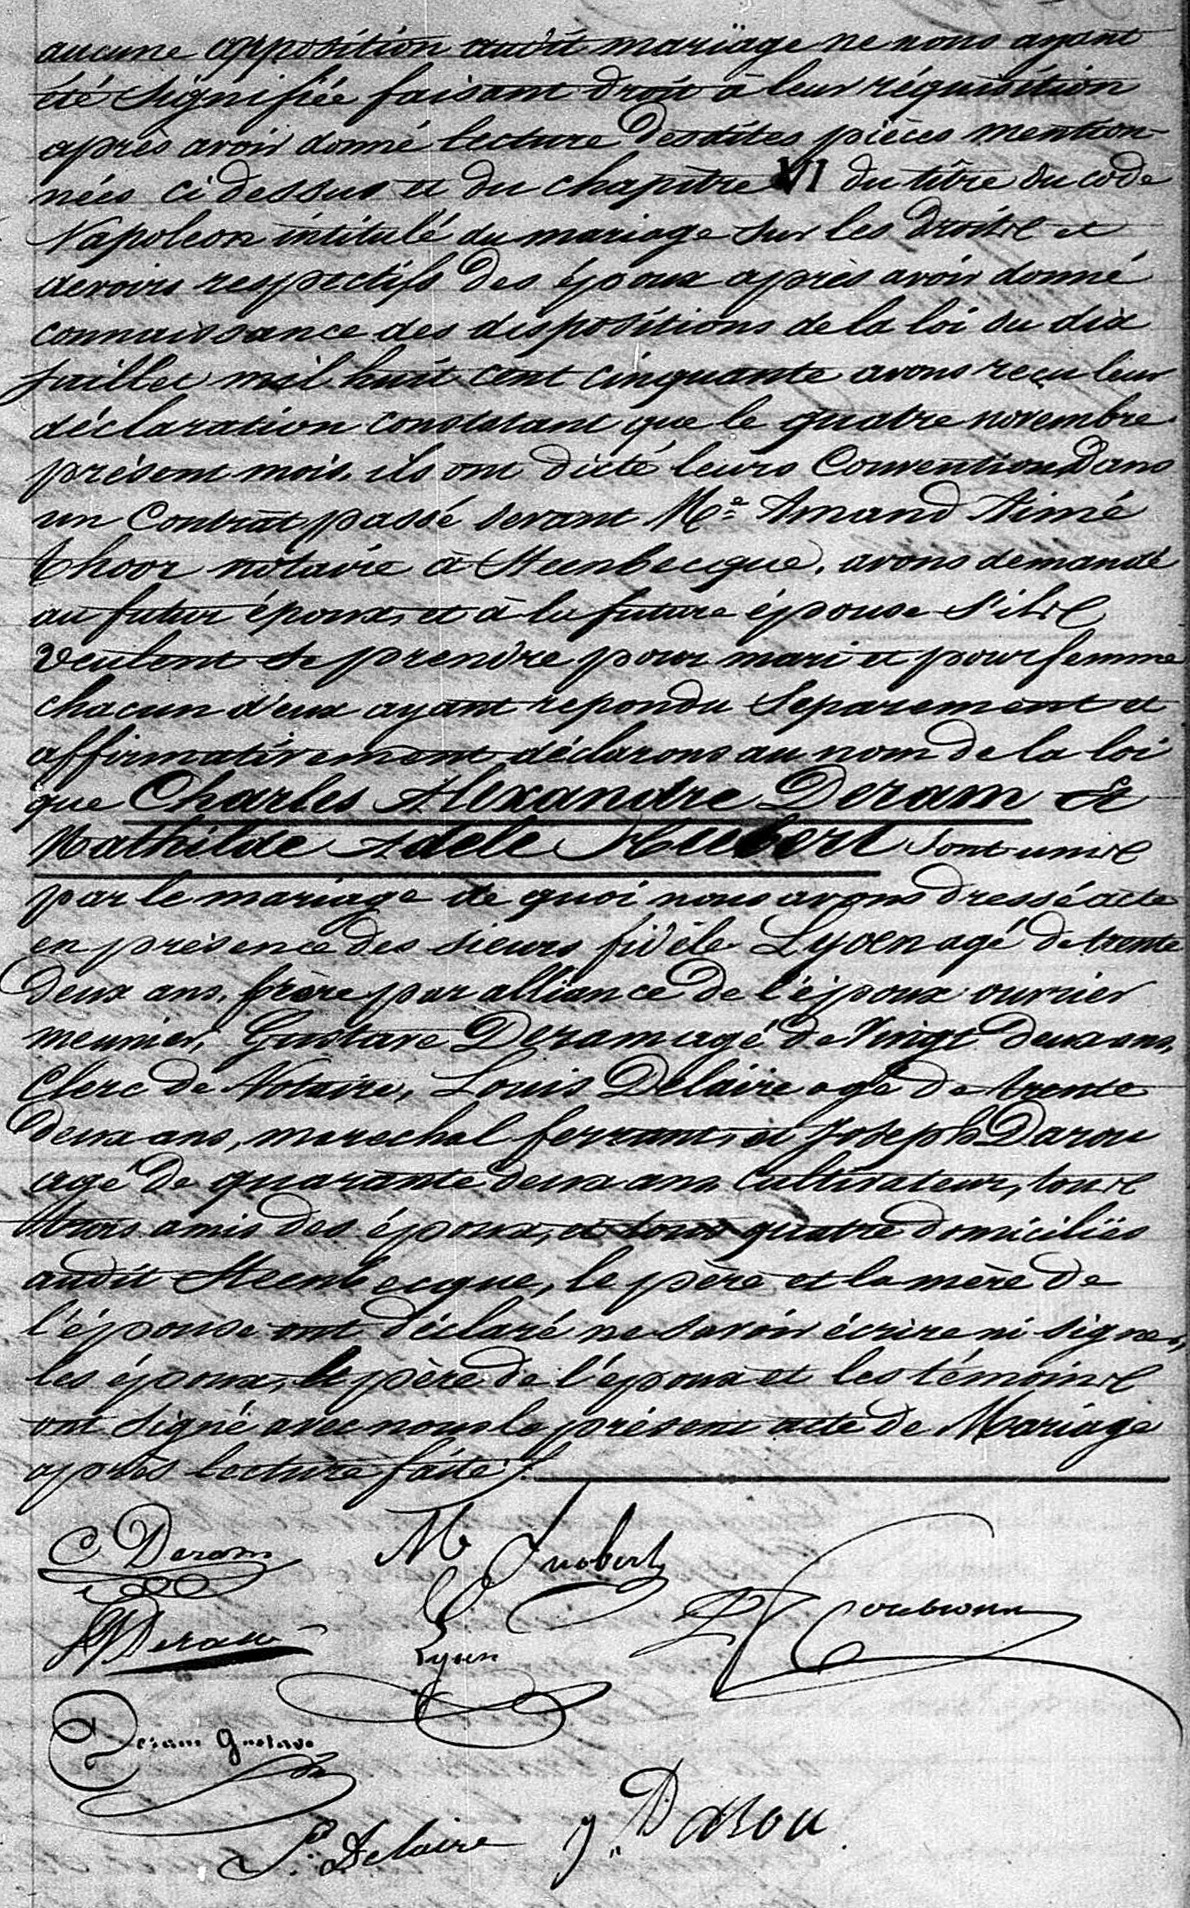 aucune opposition audit mariage ne nous ayant
été signifiée faisant droit à leur réquisition
après avoir donné lecture desdites pièces mention-
nées ci dessus et du chapitre VI du titre du code
Napoleon intitulé du mariage sur les droits et
devoirs respectifs des époux après avoir donné
connaissance des dispositions de la loi du dix
juillet mil huit cent cinquante avons reçu leur
déclaration constatant que le quatre novembre
présent mois, ils ont dicté leurs Convention Dans
un Contrat passé devant Me Amand Aimé
Thoor notaire à Steenbecque, avons demandé
au futur époux, et à la future épouse s'ils
veulent se prendre pour mari et pour femme
chacun d'eux ayant repondu Separement et
affirmativement déclarons au nom de la loi
que Charles Alexandre Deram Et
Mathilde Adèle Hubert sont unis
par le mariage de quoi nous avons dressé acte
en présence des sieurs fidèle Lyoen agé de trente
deux ans, frère par alliance de l'époux ouvrier
meunier, Gustave Deram agé de Vingt deux ans,
Clerc de Notaire, Louis Delaire agé de trente
deux ans, marechal ferrant, et Joseph Darou
agé de quarante deux ans Cultivateur, tous
trois amis des époux, et tous quatre domiciliés
audit Steenbecque, le père et la mère de
l'épouse ont déclaré ne savoir écrire ni signer,
les époux, le père de l'époux et les témoins
ont signé avec nous le présent acte de Mariage
après lecture faite ./.
C. Deram M Huobert
Deram Lyoen
Deram Gustave
L. Delaire J. Darou